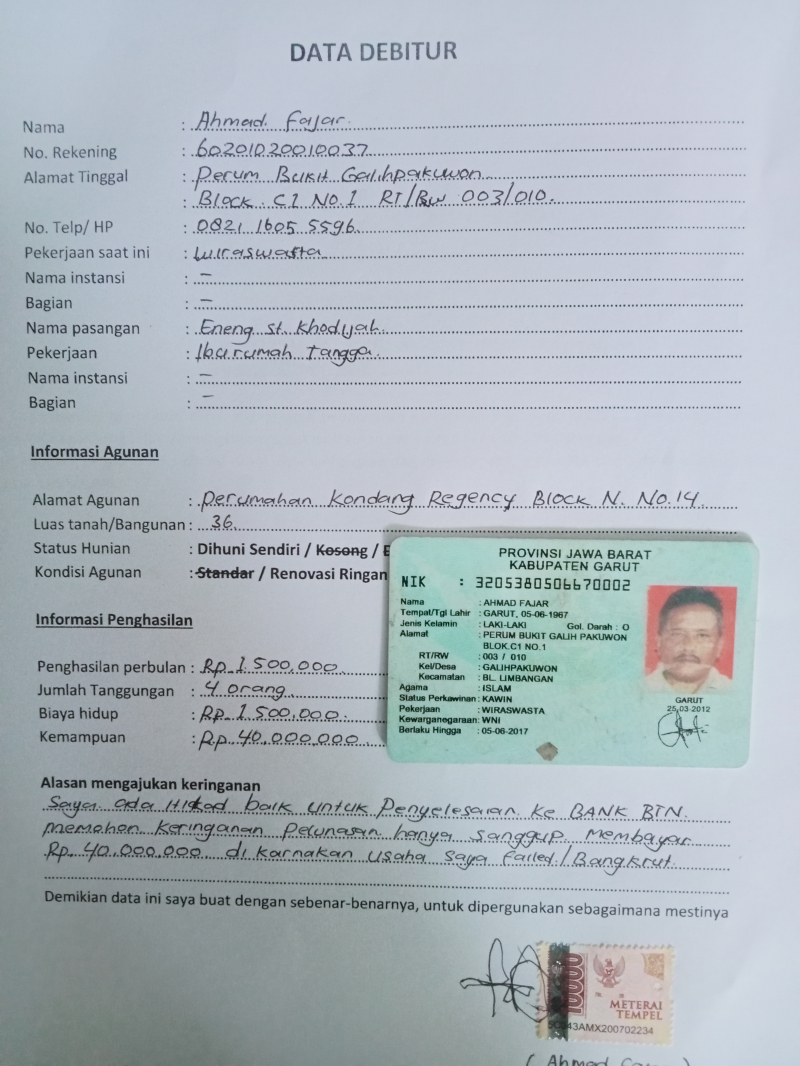 DATA DEBITUR
Nama : Ahmad Fajar.
No. Rekening : 60201020010037
Alamat Tinggal : Perum Bukit Galihpakuwon
: Block C1 No.1 RT/RW 003/010.
No. Telp/ HP : 0821 1605 5596
Pekerjaan saat ini : Wiraswasta
Nama instansi : –
Bagian : –
Nama pasangan : Eneng st. Khodyah
Pekerjaan : Ibu rumah Tangga
Nama instansi : –
Bagian : –
Informasi Agunan
Alamat Agunan : Perumahan Kondang Regency Block N. No.14
Luas tanah/Bangunan : 36
Status Hunian : Dihuni Sendiri / Kosong /
Kondisi Agunan : Standar / Renovasi Ringan
Informasi Penghasilan
Penghasilan perbulan : Rp 1.500,000
Jumlah Tanggungan : 4 orang
Biaya hidup : Rp 1.500,000.
Kemampuan : Rp. 40.000.000
PROVINSI JAWA BARAT
KABUPATEN GARUT
NIK : 3205380506670002
Nama : AHMAD FAJAR
Tempat/Tgl Lahir : GARUT, 05-06-1967
Jenis Kelamin : LAKI-LAKI Gol. Darah : O
Alamat : PERUM BUKIT GALIH PAKUWON
BLOK.C1 NO.1
RT/RW : 003 / 010
Kel/Desa : GALIHPAKUWON
Kecamatan : BL. LIMBANGAN
Agama : ISLAM
Status Perkawinan : KAWIN
Pekerjaan : WIRASWASTA
Kewarganegaraan : WNI
Berlaku Hingga : 05-06-2017
GARUT
25-03-2012
Alasan mengajukan keringanan
Saya ada itikad baik untuk Penyelesaian Ke BANK BTN.
memohon Keringanan Pelunasan hanya sanggup Membayar
Rp 40.000.000 di karnakan usaha saya Failed / Bangkrut.
Demikian data ini saya buat dengan sebenar-benarnya, untuk dipergunakan sebagaimana mestinya
10000
METERAI
TEMPEL
43AMX200702234
( Ahmad )